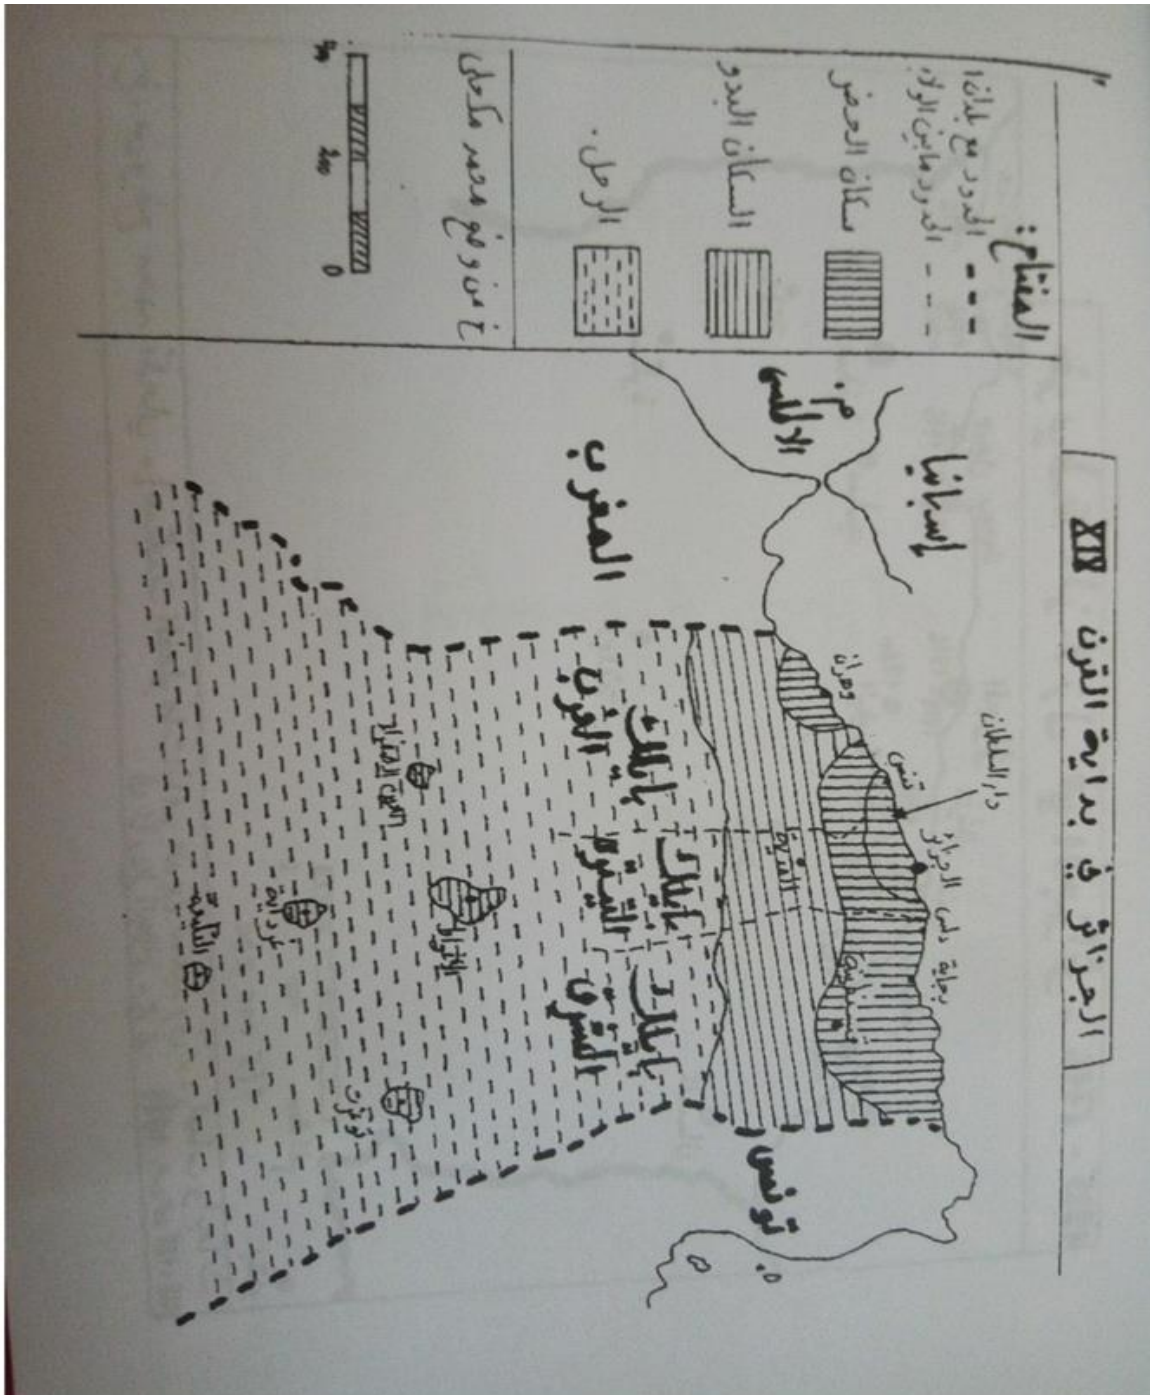 الجزائر في بداية القرن XIX
المفتاح:
الحدود مع بلدان ا
الحدود مابين الولاي
سكان الحضر
السكان البدو
الرحل.
خ من وضع محمد مكحلي
0
200
إسبانيا
م. الاطلسي
المغرب
تونس
دار السلطان
وهران
تنس
الجزائر
دلس
بجاية
قسنطينة
المدية
بايلك الغرب
بايلك التيتري
بايلك الشرق
العين الصفراء
الاغواط
غرداية
توقرت